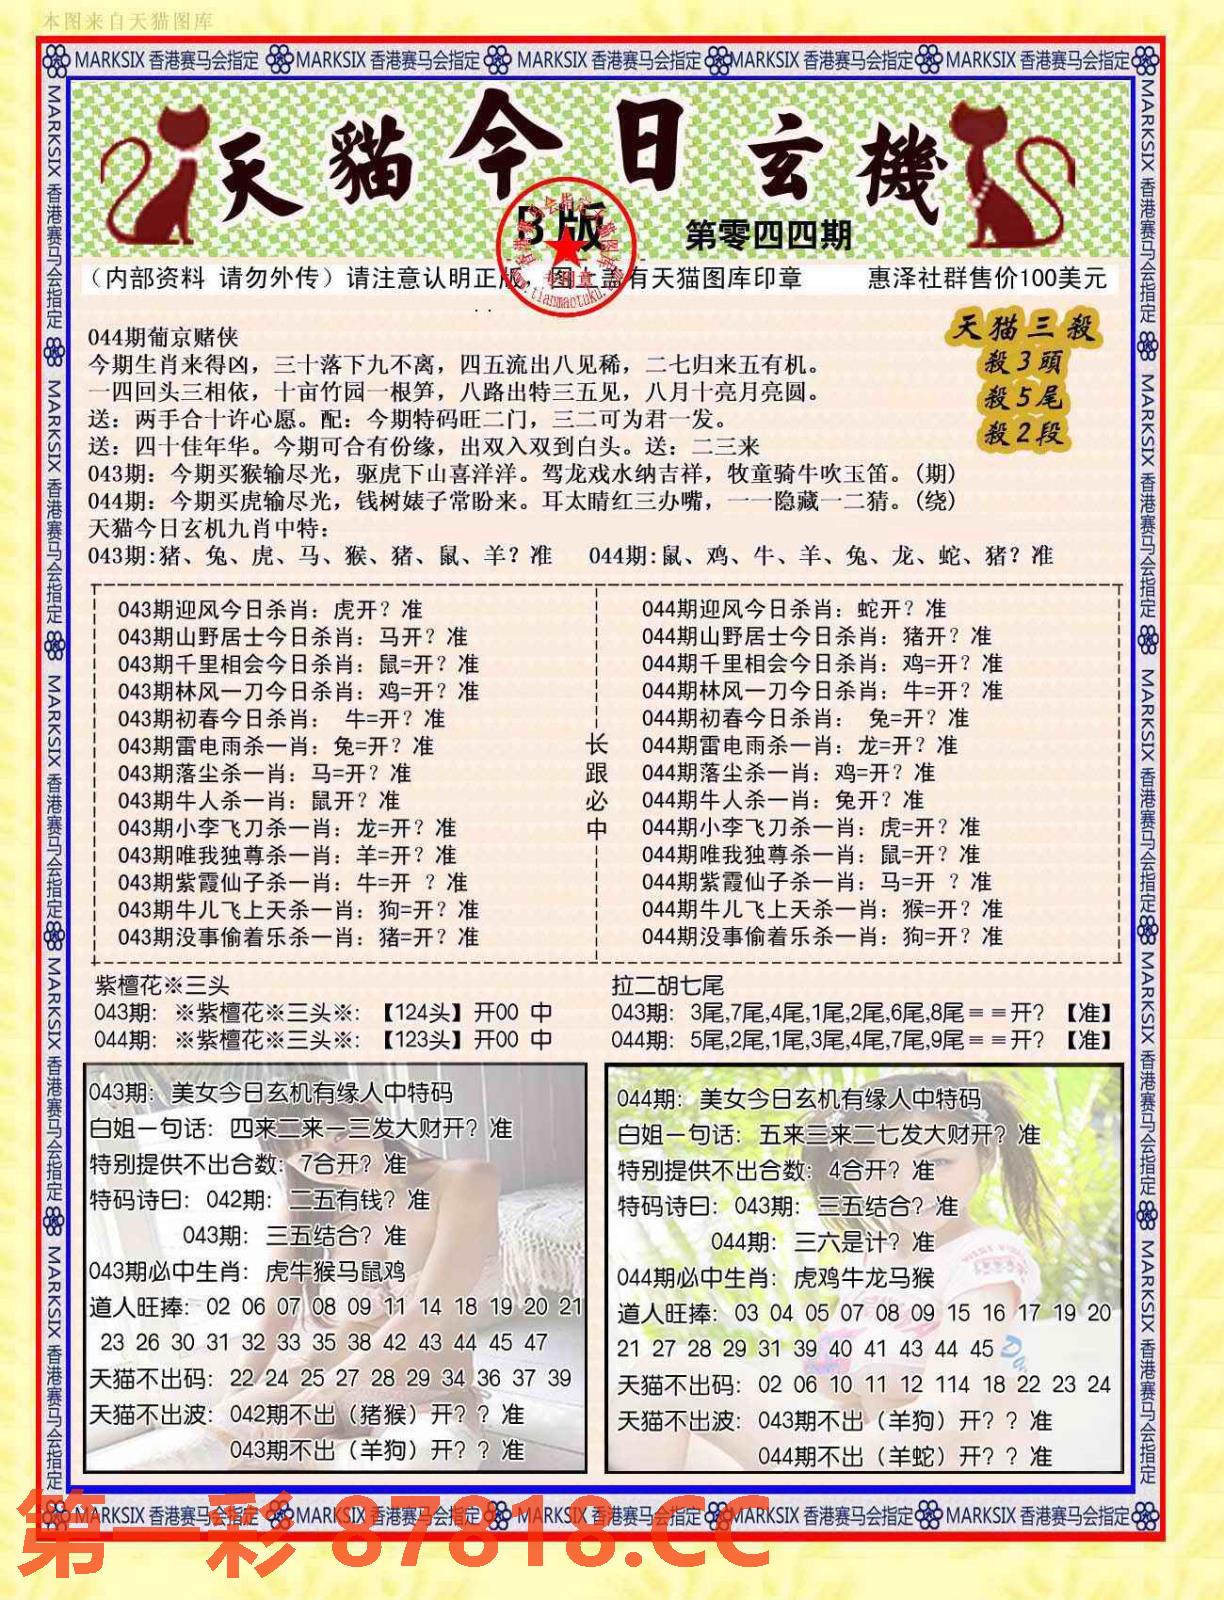 本图来自天猫图库
MARKSIX 香港赛马会指定 MARKSIX 香港赛马会指定 MARKSIX 香港赛马会指定 MARKSIX 香港赛马会指定 MARKSIX 香港赛马会指定
天貓今日玄機
B版
第零四四期
（内部资料 请勿外传）请注意认明正版 图上盖有天猫图库印章 惠泽社群售价100美元
天猫三殺
殺3頭
殺5尾
殺2段
044期葡京赌侠
今期生肖来得凶，三十落下九不离，四五流出八见稀，二七归来五有机。
一四回头三相依，十亩竹园一根笋，八路出特三五见，八月十亮月亮圆。
送：两手合十许心愿。配：今期特码旺二门，三二可为君一发。
送：四十佳年华。今期可合有份缘，出双入双到白头。送：二三来
043期：今期买猴输尽光，驱虎下山喜洋洋。驾龙戏水纳吉祥，牧童骑牛吹玉笛。(期)
044期：今期买虎输尽光，钱树婊子常盼来。耳太睛红三办嘴，一一隐藏一二猜。(绕)
天猫今日玄机九肖中特：
043期:猪、兔、虎、马、猴、猪、鼠、羊？准 044期:鼠、鸡、牛、羊、兔、龙、蛇、猪？准
043期迎风今日杀肖：虎开？准
043期山野居士今日杀肖：马开？准
043期千里相会今日杀肖：鼠=开？准
043期林风一刀今日杀肖：鸡=开？准
043期初春今日杀肖： 牛=开？准
043期雷电雨杀一肖：兔=开？准
043期落尘杀一肖：马=开？准
043期牛人杀一肖：鼠开？准
043期小李飞刀杀一肖：龙=开？准
043期唯我独尊杀一肖：羊=开？准
043期紫霞仙子杀一肖：牛=开 ？准
043期牛儿飞上天杀一肖：狗=开？准
043期没事偷着乐杀一肖：猪=开？准
长跟必中
044期迎风今日杀肖：蛇开？准
044期山野居士今日杀肖：猪开？准
044期千里相会今日杀肖：鸡=开？准
044期林风一刀今日杀肖：牛=开？准
044期初春今日杀肖： 兔=开？准
044期雷电雨杀一肖：龙=开？准
044期落尘杀一肖：鸡=开？准
044期牛人杀一肖：兔开？准
044期小李飞刀杀一肖：虎=开？准
044期唯我独尊杀一肖：鼠=开？准
044期紫霞仙子杀一肖：马=开 ？准
044期牛儿飞上天杀一肖：猴=开？准
044期没事偷着乐杀一肖：狗=开？准
紫檀花※三头
043期：※紫檀花※三头※：【124头】开00 中
044期：※紫檀花※三头※：【123头】开00 中
拉二胡七尾
043期：3尾,7尾,4尾,1尾,2尾,6尾,8尾＝＝开？【准】
044期：5尾,2尾,1尾,3尾,4尾,7尾,9尾＝＝开？【准】
043期：美女今日玄机有缘人中特码
白姐一句话：四来二来一三发大财开？准
特别提供不出合数：7合开？准
特码诗曰：042期：二五有钱？准
043期：三五结合？准
043期必中生肖：虎牛猴马鼠鸡
道人旺捧：02 06 07 08 09 11 14 18 19 20 21
23 26 30 31 32 33 35 38 42 43 44 45 47
天猫不出码：22 24 25 27 28 29 34 36 37 39
天猫不出波：042期不出（猪猴）开？？准
043期不出（羊狗）开？？准
044期：美女今日玄机有缘人中特码
白姐一句话：五来三来二七发大财开？准
特别提供不出合数：4合开？准
特码诗曰：043期：三五结合？准
044期：三六是计？准
044期必中生肖：虎鸡牛龙马猴
道人旺捧：03 04 05 07 08 09 15 16 17 19 20
21 27 28 29 31 39 40 41 43 44 45
天猫不出码：02 06 10 11 12 114 18 22 23 24
天猫不出波：043期不出（羊狗）开？？准
044期不出（羊蛇）开？？准
MARKSIX 香港赛马会指定 MARKSIX 香港赛马会指定 MARKSIX 香港赛马会指定 MARKSIX 香港赛马会指定 MARKSIX 香港赛马会指定
第一彩 87818.CC